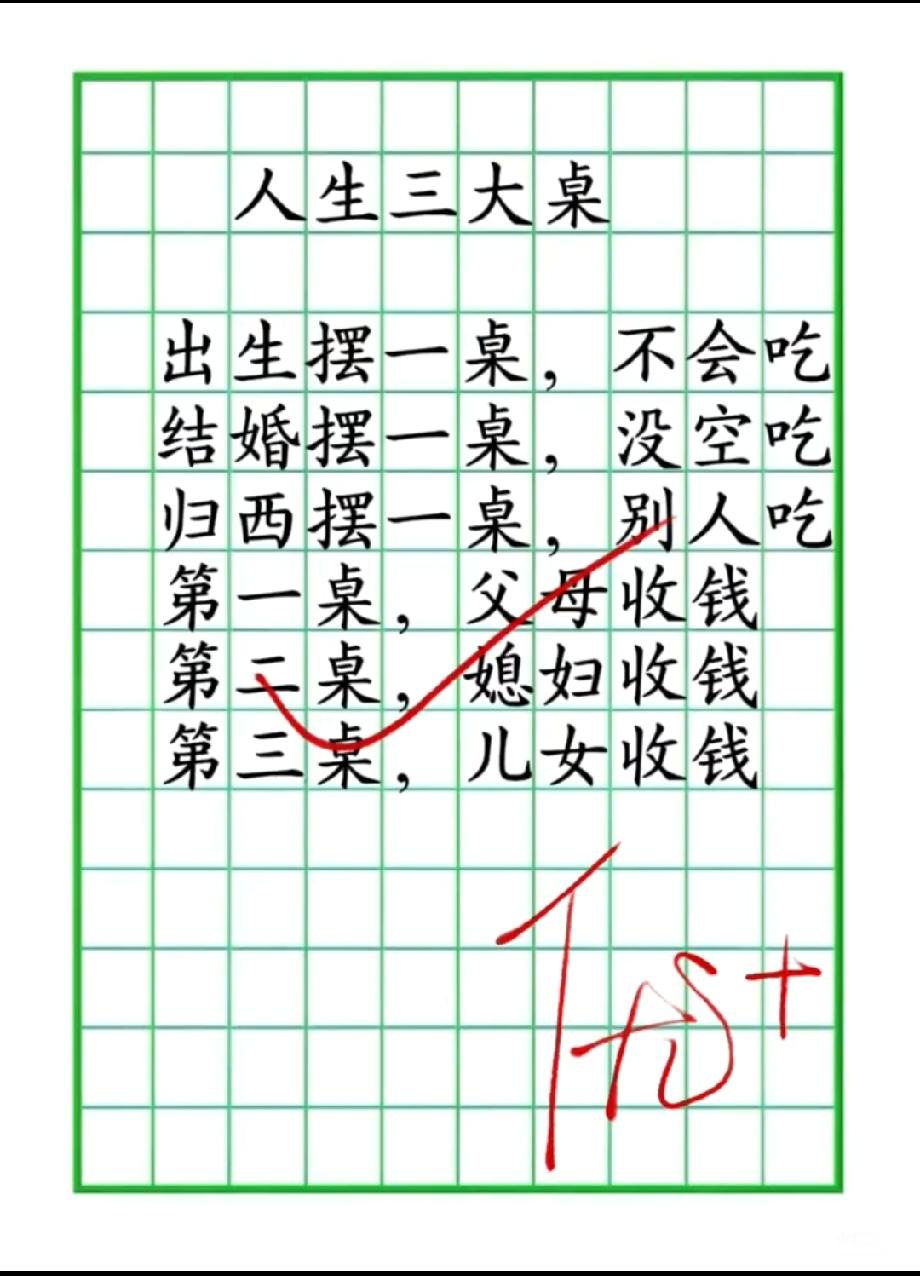 人生三大桌
出生摆一桌，不会吃
结婚摆一桌，没空吃
归西摆一桌，别人吃
第一桌，父母收钱
第二桌，媳妇收钱
第三桌，儿女收钱